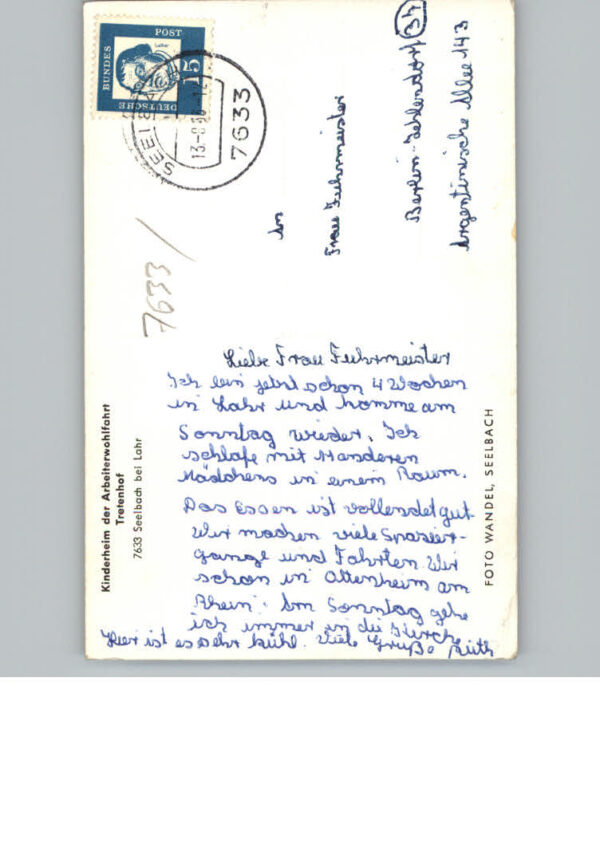 DEUTSCHE
BUNDES
POST
Luther
15
SEELBACH
13.-8.6
7633
7633/
An
Frau Fuhrmeister
Berlin-Zehlendorf 37
Argentinische Allee 143
Liebe Frau Fuhrmeister
Ich bin jetzt schon 4 Wochen
in Lahr und komme am
Sonntag wieder. Ich
schlafe mit 4 anderen
Mädchens in einem Raum.
Das Essen ist vollendet gut.
Wir machen viele Spazier-
gänge und Fahrten. Wir
schon in Ottenheim am
Rhein. Am Sonntag gehe
ich immer in die Kirche.
Hier ist es sehr kühl. Viele Grüße Ruth
Kinderheim der Arbeiterwohlfahrt
Tretenhof
7633 Seelbach bei Lahr
FOTO WANDEL, SEELBACH